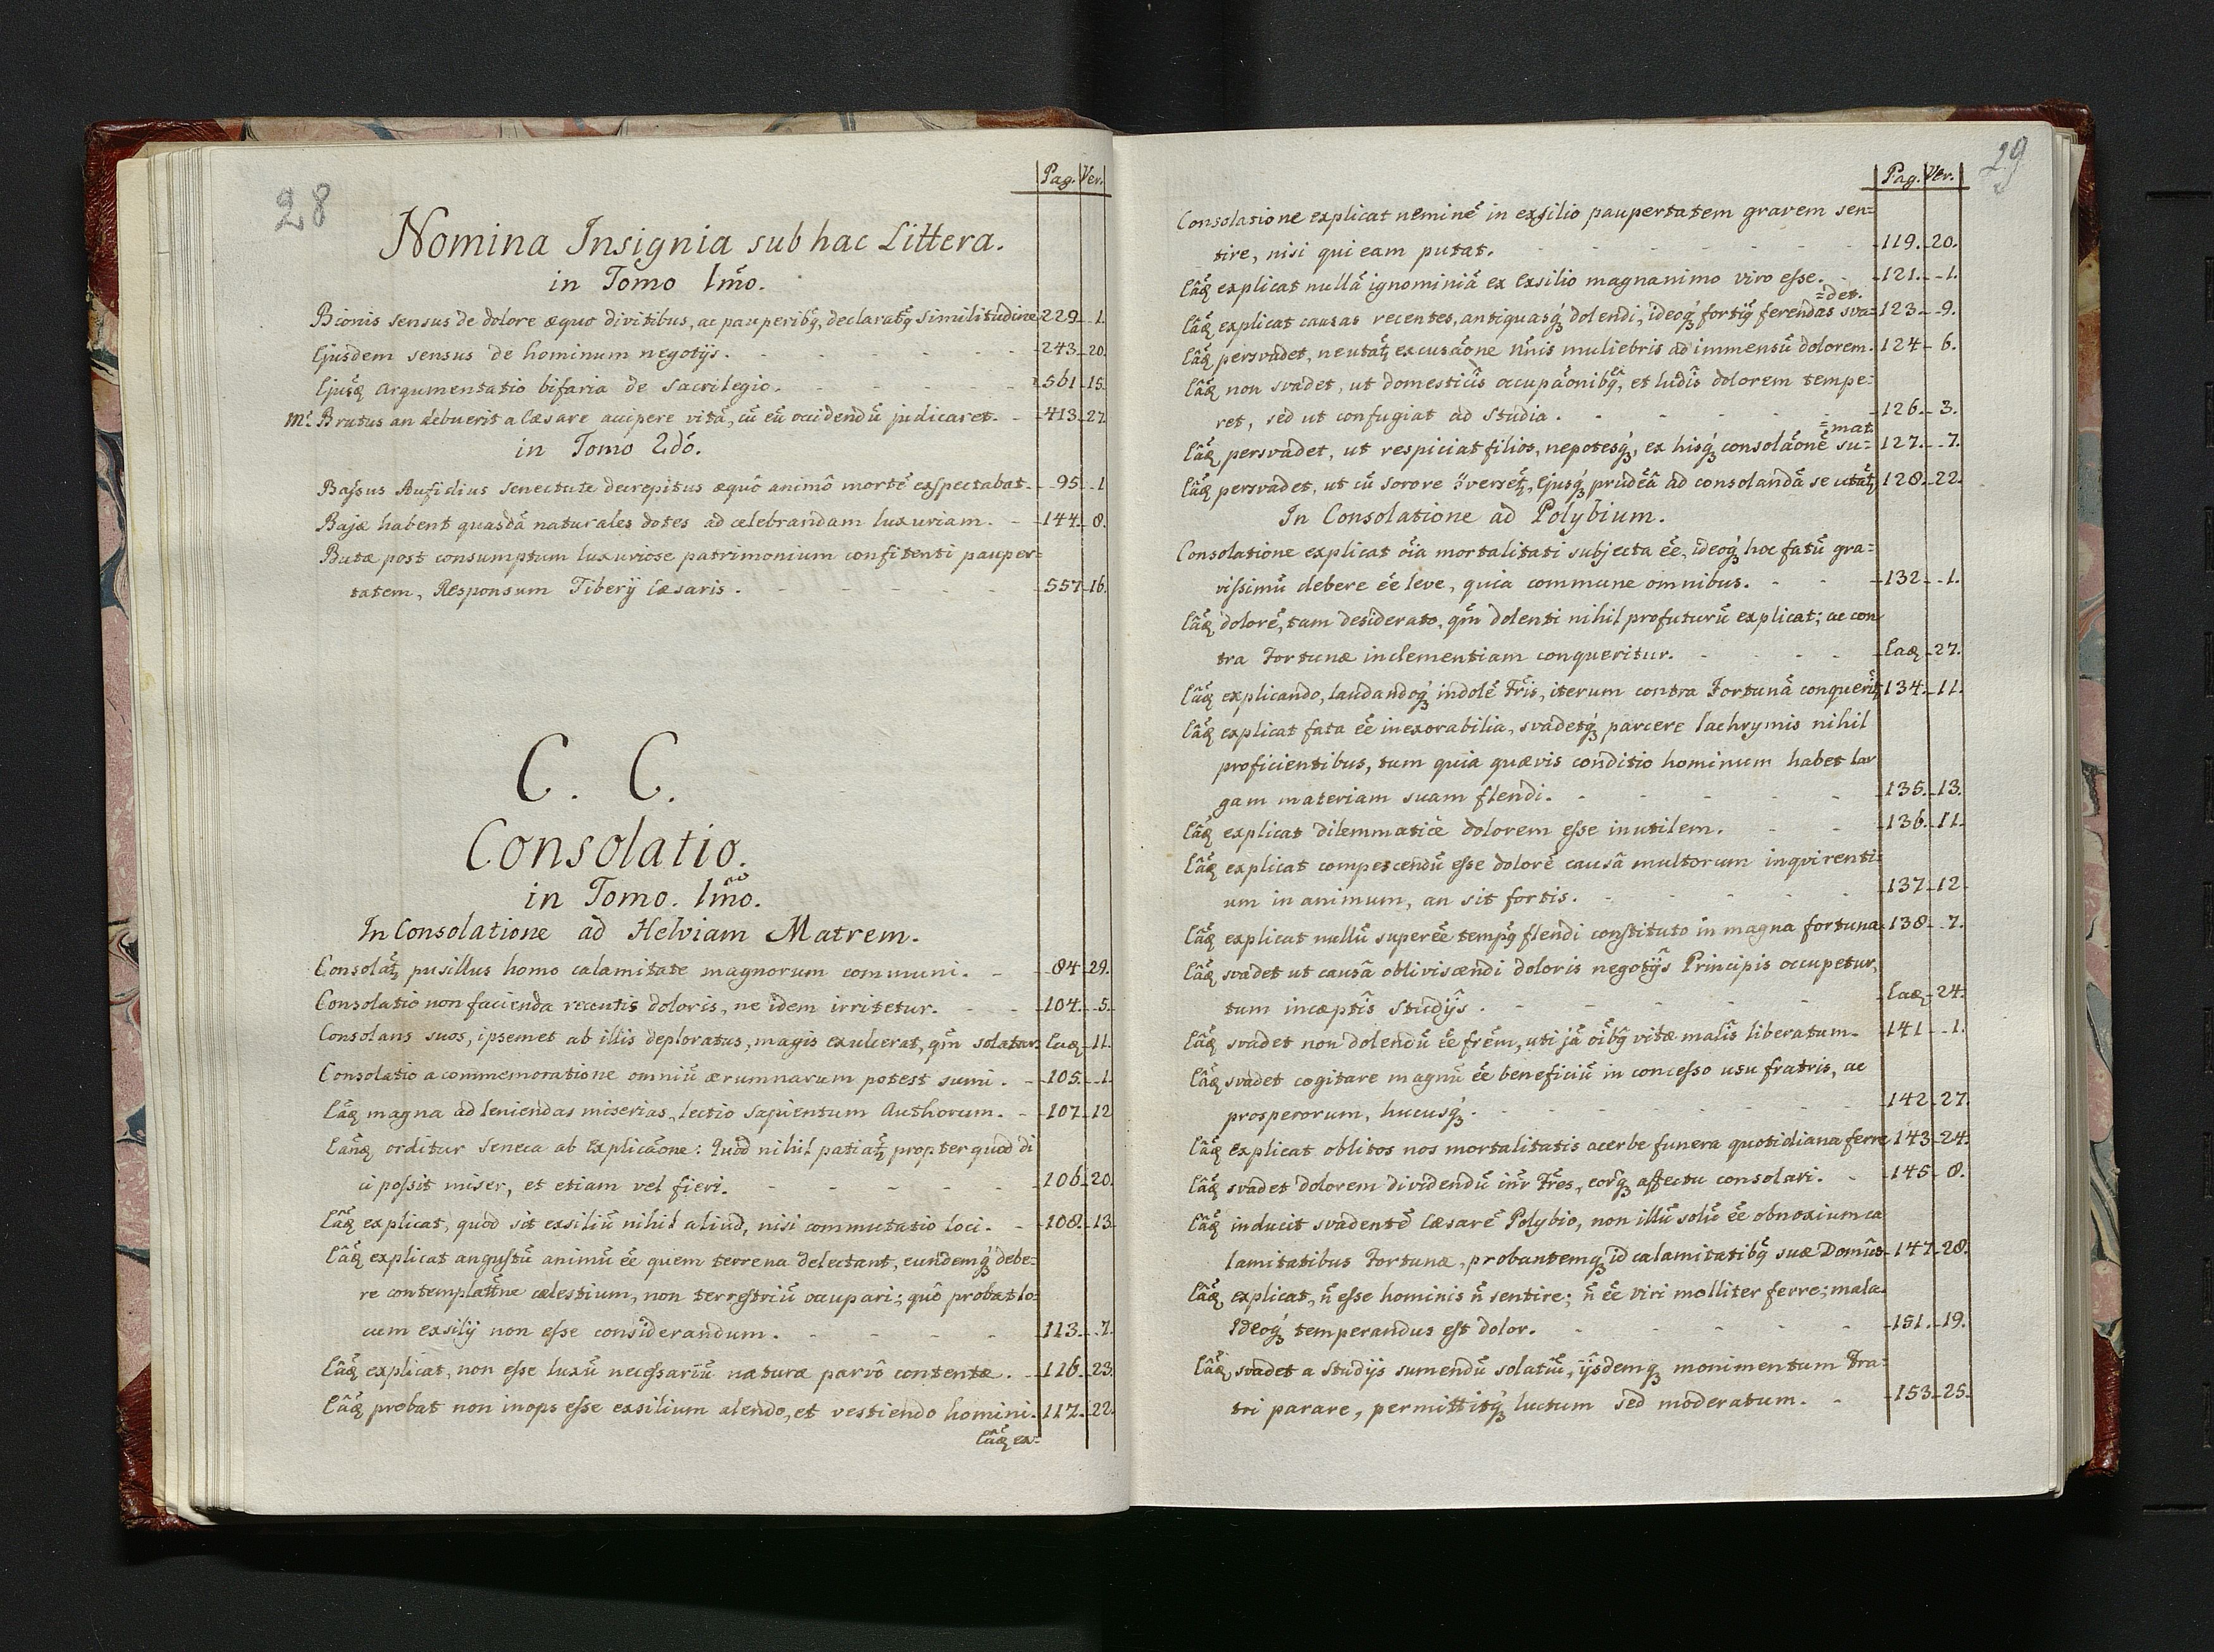 28
Pag. Ver.
Nomina Insignia sub hac Littera.
in Tomo Imo.
Bionis sensus de dolore æquo divitibus, ac pauperibq, declaratq similitudine 229. 1.
Ejusdem sensus de hominum negotijs. 243. 20.
Ejusq argumentatio bifaria de sacrilegio. 561. 15.
Mc. Brutus an debuerit a Cæsare accipere vitã, cũ eũ occidendũ judicaret. 413. 27.
in Tomo 2dó.
Baſsus Aufidius senectute decrepitus æquô animô mortẽ exſpectabat. 95. 1.
Bajæ habent quasdã naturales dotes ad celebrandam luxuriam. 144. 8.
Butæ post consumptum luxuriose patrimonium confitenti pauper=
tatem, Responsum Tiberij Cæsaris. 557. 16.
C. C.
Consolatio.
in Tomo. Imo.
In Consolatione ad Helviam Matrem.
Consolatꝫ pusillus homo calamitate magnorum communi. 84. 29.
Consolatio non facienda recentis doloris, ne idem irritetur. 104. 5.
Consolans suos, ipsemet ab illis deploratus, magis exulcerat, qm̃ solatur. Eaq 11.
Consolatio a commemoratione omniũ ærumnarum potest sumi. 105. 1.
Eãq magna ad leniendas miserias, lectio sapientum Authorum. 107. 12
Eanq orditur Seneca ab Explicãone: Quod nihil patiatꝫ propter quod di
ci poſsit miser, et etiam vel fieri. 106. 20.
Eâq explicat, quod sit exsiliũ nihil aliud, nisi commutatio loci. 108. 13.
Eâq explicat anguſtũ animũ ẽe quem terrena delectant, eundemq́ debe=
re contemplatĩne cælestium, non terreſtriũ occupari; quô probat lo=
cum exsilij non eſse considerandum. 113. 7.
Eâq explicat, non eſse luxũ neceſsariũ naturæ parvô contentæ. 116. 23.
Eâq probat non inops eſse exsilium alendo, et vestiendo homini. 117. 22.
Eâq ex=
29
Pag. Ver.
Consolatione explicat neminẽ in exsilio paupertatem gravem sen=
tire, nisi qui eam putat. 119. 20.
Eâq explicat nullã ignominiã ex Exsilio magnanimo viro eſse. 121. 1.
=det.
Eâq explicat causas recentes, antiquasq́ dolendi, ideoq́ fortiq ferendas sva= 123. 9.
Eâq persvadet, ne utatꝫ excusãone ñnis muliebris ad immensũ dolorem. 124. 6.
Eâq non svadet, ut domesticîs occupãonibq, et ludîs dolorem tempe=
ret, sed ut confugiat ad studia. 126. 3.
=mat.
Eâq persvadet, ut respiciat filios, nepotesq́, ex hisq́ consolãonẽ su= 127. 7.
Eâq persvadet, ut cũ sorore ɔ̈versetꝫ, Ejusq́ prudẽâ ad consolandã se utatꝫ 128. 22.
In Consolatione ad Polybium.
Consolatione explicat õia mortalitati subjecta ẽe, ideoq́ hoc fatũ gra=
viſsimũ debere ẽe leve, quia commune omnibus. 132. 1.
Eâq dolorẽ, tam desiderato, qm̃ dolenti nihil profuturũ explicat; ac con
tra Fortunæ inclementiam conqueritur. Eaq 27.
Eâq explicando, laudandoq́ indolẽ Fr̃is, iterum contra Fortunã conqueritꝫ 134. 11.
Eâq explicat fata ẽe inexorabilia, svadetq́ parcere lachrymis nihil
proficientibus, tum quia quævis conditio hominum habet lar
gam materiam suam flendi. 135. 13.
Eâq explicat dilemmaticè dolorem eſse inutilem. 136. 11.
Eâq explicat compescendũ eſse dolorẽ causâ multorum inqvirenti=
um in animum, an sit fortis. 137. 12.
Eâq explicat nullũ superẽe tempq flendi conſtituto in magna fortuna. 138. 7.
Eâq svadet ut causâ obliviscendi doloris negotijs Principis occupetur,
tum inceptîs Studijs. Eaq 24.
Eâq svadet non dolendũ ẽe fr̃em, uti jã oĩbq vitæ malîs liberatum. 141. 1.
Eâq svadet cogitare magnũ ẽe beneficiũ in conceſso usu fratris, ac
prosperorum, hucusq́. 142. 27.
Eâq Explicat oblitos nos mortalitatis acerbe funera quotidiana ferre 143. 24.
Eâq svadet dolorem dividendũ int̃r Fr̃es, eorq affectu consolari. 145. 8.
Eâq inducit svadentẽ Cæsarẽ Polybio, non illũ solũ ẽe obnoxium ca
lamitatibus Fortunæ, probantemq id calamitatibq suæ Domûs. 147. 28.
Eâq explicat, ñ eſse hominis ñ sentire; ñ ẽe viri molliter ferre; mala.
Ideoq́ temperandus eſt dolor. 151. 19.
Eâq svadet a studijs sumendũ solatiũ, ijsdemq monimentum Fra=
tri parare, permittitq́ luctum sed moderatum. 153. 25.